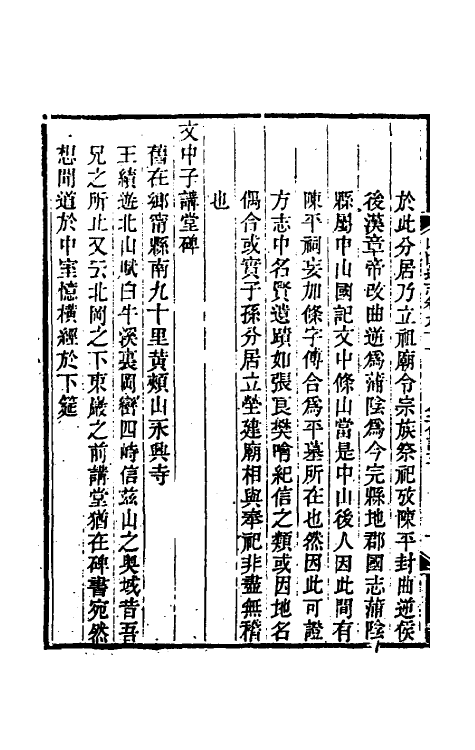 於此分居乃立祖廟令宗族祭祀攷陳平封曲逆侯
後漢章帝改曲逆爲蒲陰爲今完縣地郡國志蒲陰
縣屬中山國記文中條山當是中山後人因此間有
陳平祠妄加條字傅合爲平墓所在也然因此可證
方志中名賢遺蹟如張良樊噲紀信之類或因地名
偶合或實子孫分居立塋建廟相與奉祀非盡無稽
也
文中子講堂碑
舊在鄉甯縣南九十里黄頰山永興寺
王績遊北山賦白牛溪裏岡巒四峙信茲山之奥域昔吾
兄之所止又云北岡之下東巖之前講堂猶在碑書宛然
想聞道於中室憶横經於下筵